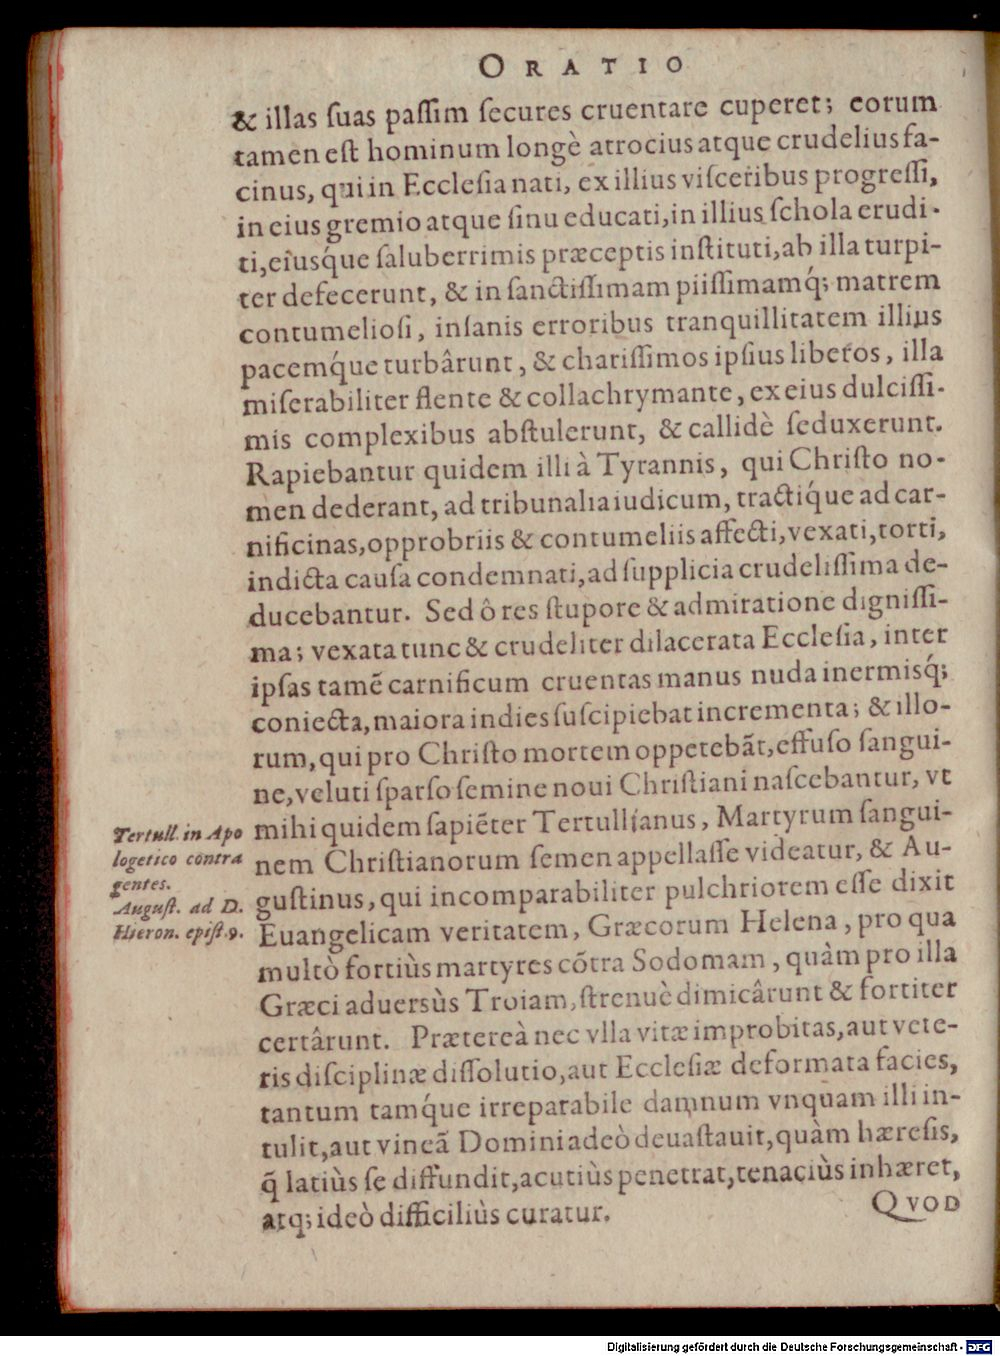 ORATIO
& illas ſuas paſſim ſecures cruentare cuperet; eorum
tamen eſt hominum longè atrocius atque crudelius fa-
cinus, qui in Eccleſia nati, ex illius viſceribus progreſſi,
in eius gremio atque ſinu educati, in illius ſchola erudi-
ti, eiusq́ue ſaluberrimis præceptis inſtituti, ab illa turpi-
ter defecerunt, & in ſanctiſſimam piiſſimamq́; matrem
contumelioſi, inſanis erroribus tranquillitatem illius
pacemq́ue turbârunt, & chariſſimos ipſius liberos, illa
miſerabiliter flente & collachrymante, ex eius dulciſſi-
mis complexibus abſtulerunt, & callidè ſeduxerunt.
Rapiebantur quidem illi à Tyrannis, qui Chriſto no-
men dederant, ad tribunalia iudicum, tractiq́ue ad car-
nificinas, opprobriis & contumeliis affecti, vexati, torti,
indicta cauſa condemnati, ad ſupplicia crudeliſſima de-
ducebantur. Sed ô res ſtupore & admiratione digniſſi-
ma; vexata tunc & crudeliter dilacerata Eccleſia, inter
ipſas tamẽ carnificum cruentas manus nuda inermisq́;
coniecta, maiora indies ſuſcipiebat incrementa; & illo-
rum, qui pro Chriſto mortem oppetebãt, effuſo ſangui-
ne, veluti ſparſo ſemine noui Chriſtiani naſcebantur, vt
mihi quidem ſapiẽter Tertullianus, Martyrum ſangui-
nem Chriſtianorum ſemen appellaſſe videatur, & Au-
guſtinus, qui incomparabiliter pulchriorem eſſe dixit
Euangelicam veritatem, Græcorum Helena, pro qua
multò fortiùs martyres cõtra Sodomam, quàm pro illa
Græci aduersùs Troiam, ſtrenuè dimicârunt & fortiter
certârunt. Prætereà nec vlla vitæ improbitas, aut vete-
ris diſciplinæ diſſolutio, aut Eccleſiæ deformata facies,
tantum tamq́ue irreparabile damnum vnquam illi in-
tulit, aut vineã Domini adeò deuaſtauit, quàm hæreſis,
q̃ latiùs ſe diffundit, acutiùs penetrat, tenaciùs inhæret,
atq; ideò difficiliùs curatur.
QVOD
Tertull. in Apo
logetico contra
gentes.
Auguſt. ad D.
Hieron. epiſt. 9.
Digitalisierung gefördert durch die Deutsche Forschungsgemeinschaft - DFG